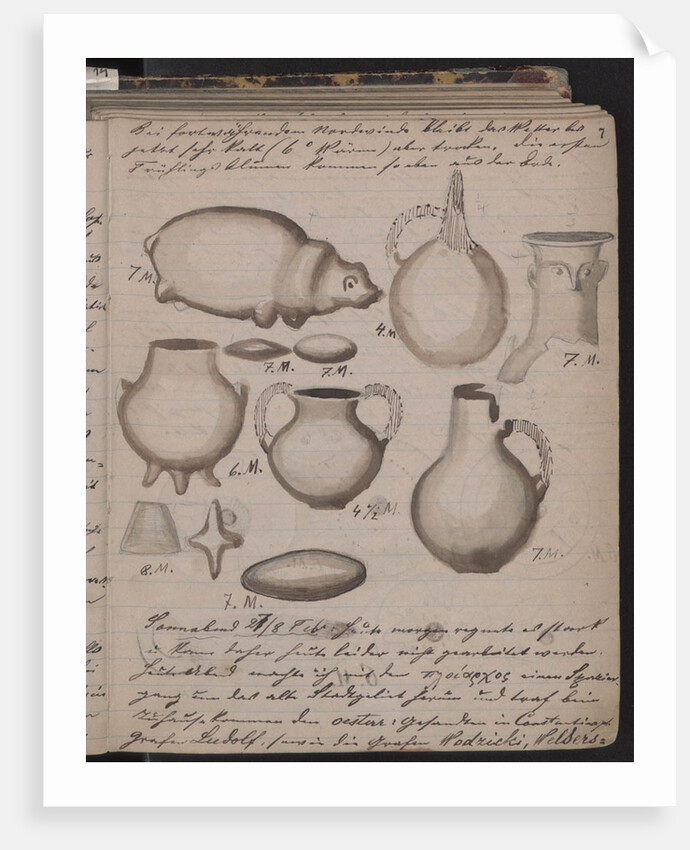 14
7
Bei fortwährendem Nordwinde bleibt das Wetter bis
jetzt sehr kalt (6° Wärme) aber trocken. die ersten
Frühlings blumen kommen so eben aus der Erde.
7 M.
4. M
7. M.
7. M.
7. M.
6. M.
4 1/2 M.
7. M.
8. M.
7. M.
Sonnabend 27/8 Feb. Heute morgen regnete es stark
u kann daher heute leider nicht gearbeitet werden.
machte ich mit dem πλοίαρχος einen Spazier
gang um das alte Stadtgebiet herum und traf beim
Zuhausekommen den oestrr: Gesandten in Constantinopel
Grafen Ludolf, sowie die Grafen Wodzicki, Welsers=